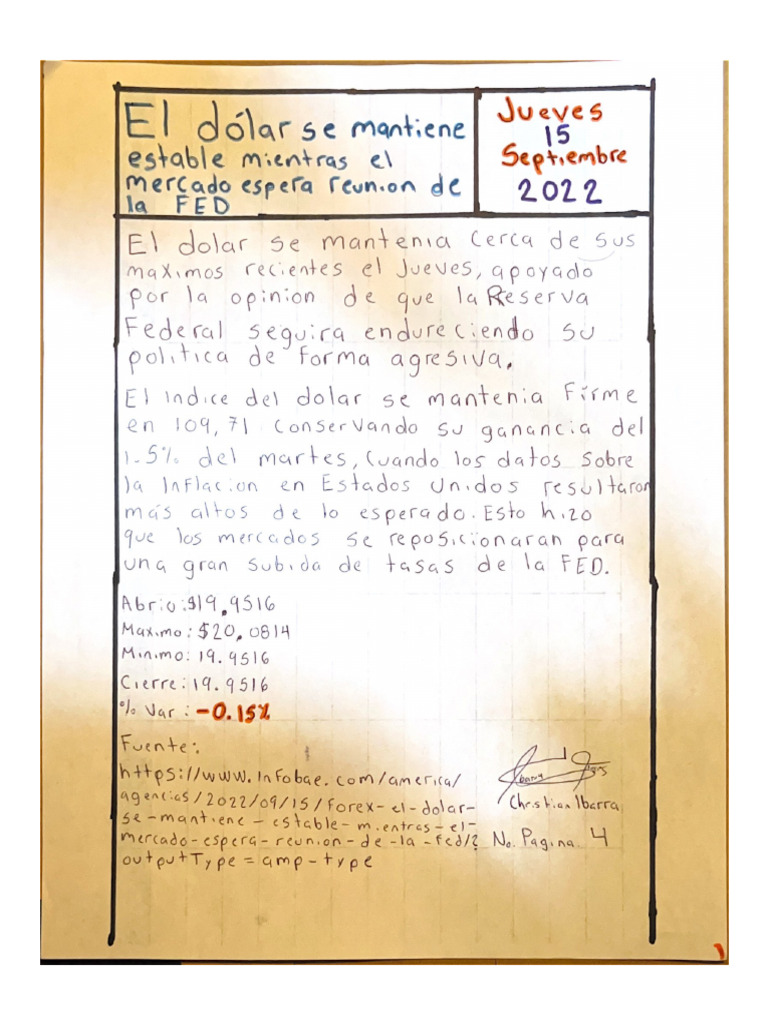 El dólar se mantiene
estable mientras el
mercado espera reunion de
la FED
Jueves
15
Septiembre
2022
El dolar se mantenia cerca de sus
maximos recientes el Jueves, apoyado
por la opinion de que la Reserva
Federal seguira endureciendo su
politica de forma agresiva.
El indice del dolar se mantenia firme
en 109,71 conservando su ganancia del
1.5% del martes, cuando los datos sobre
la inflacion en Estados Unidos resultaron
más altos de lo esperado. Esto hizo
que los mercados se reposicionaran para
una gran subida de tasas de la FED.
Abrio: $19.9516
Maximo: $20.0814
Minimo: 19.9516
Cierre: 19.9516
% Var : -0.15%
Fuente:
https://www.infobae.com/america/
agencias/2022/09/15/forex-el-dolar-
se-mantiene-estable-mientras-el-
mercado-espera-reunion-de-la-fed/?
outputType=amp-type
Christian Ibarra
No. Pagina. 4